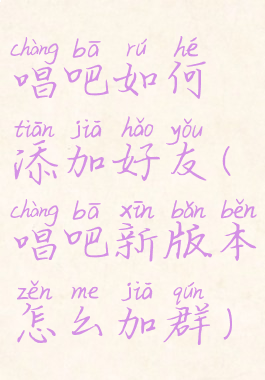 chàng bā rú hé
唱吧如何
tiān jiā hǎo yǒu
添加好友(
chàng bā xīn bǎn běn
唱吧新版本
zěn me jiā qún
怎么加群)